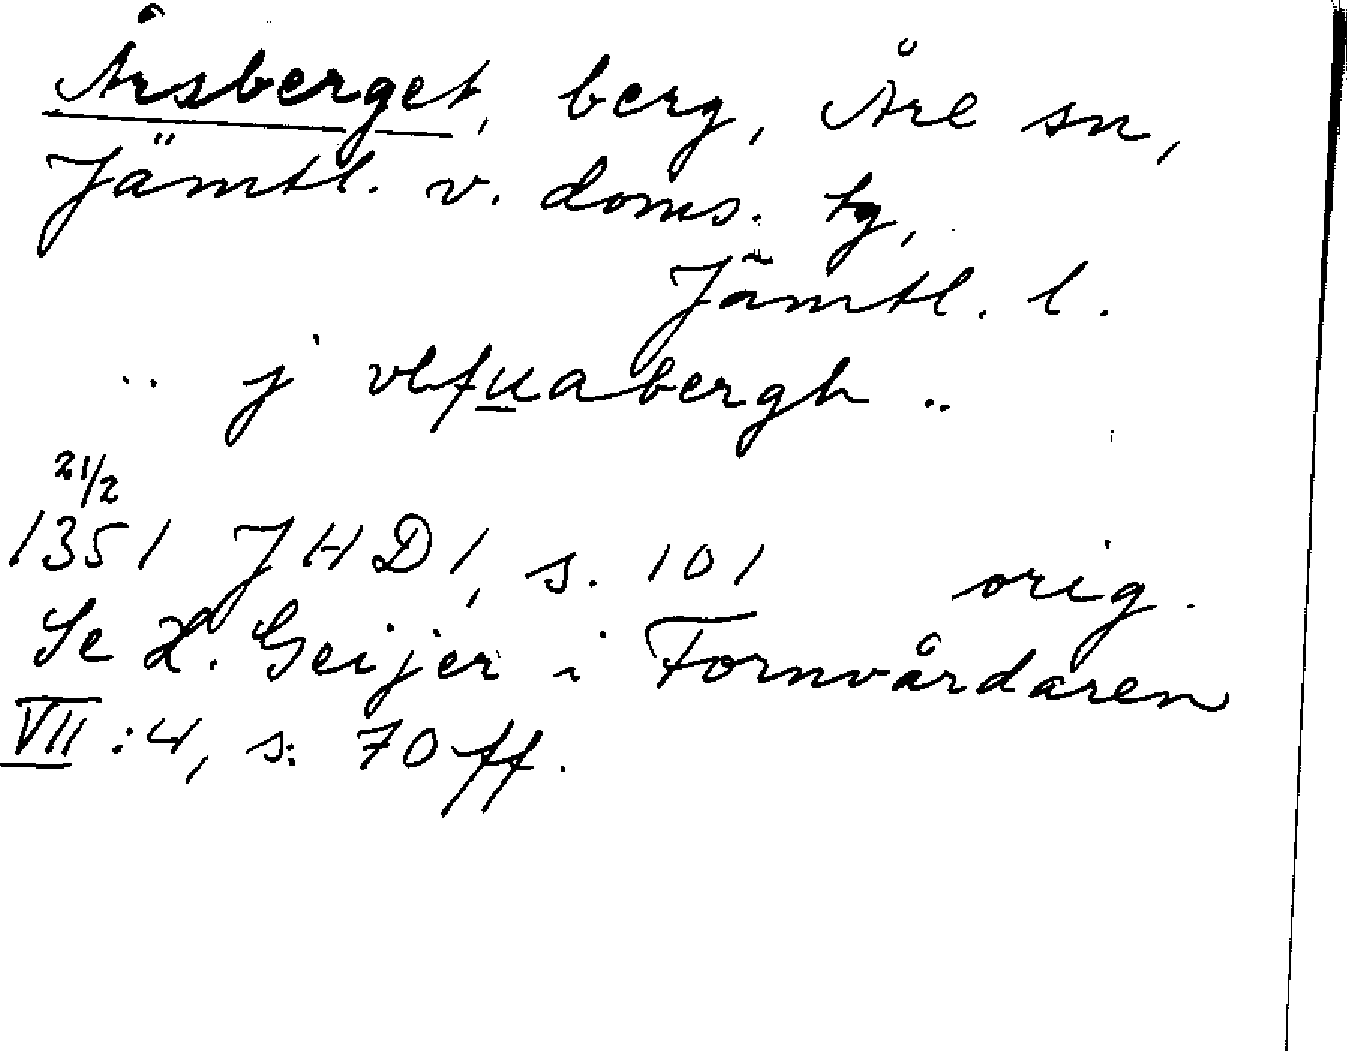 Årsberget, berg, Åre sn,
Jämtl. v. doms. tg,
Jämtl. l.
.. j vlfuabergh ..
21/2
1351 JHD 1, s. 101 orig.
Se H. Geijer i Fornvårdaren
VII:4, s. 70 ff.